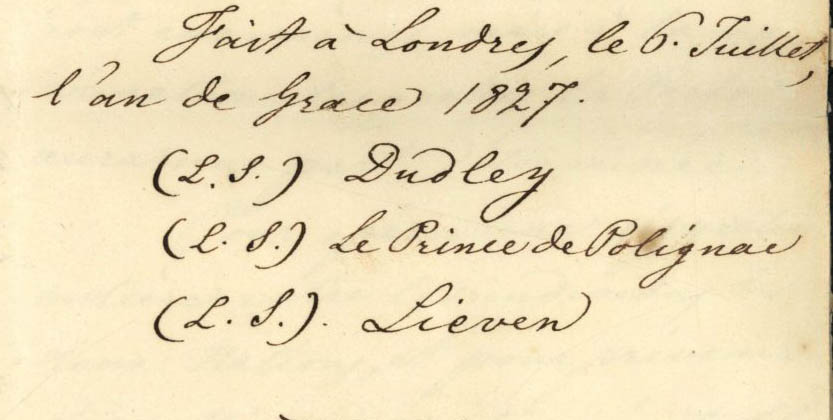 Fait à Londres, le 6. Juillet,
l'an de Grace 1827.
(L. S.) Dudley
(L. S.) Le Prince de Polignac
(L. S.). Lieven